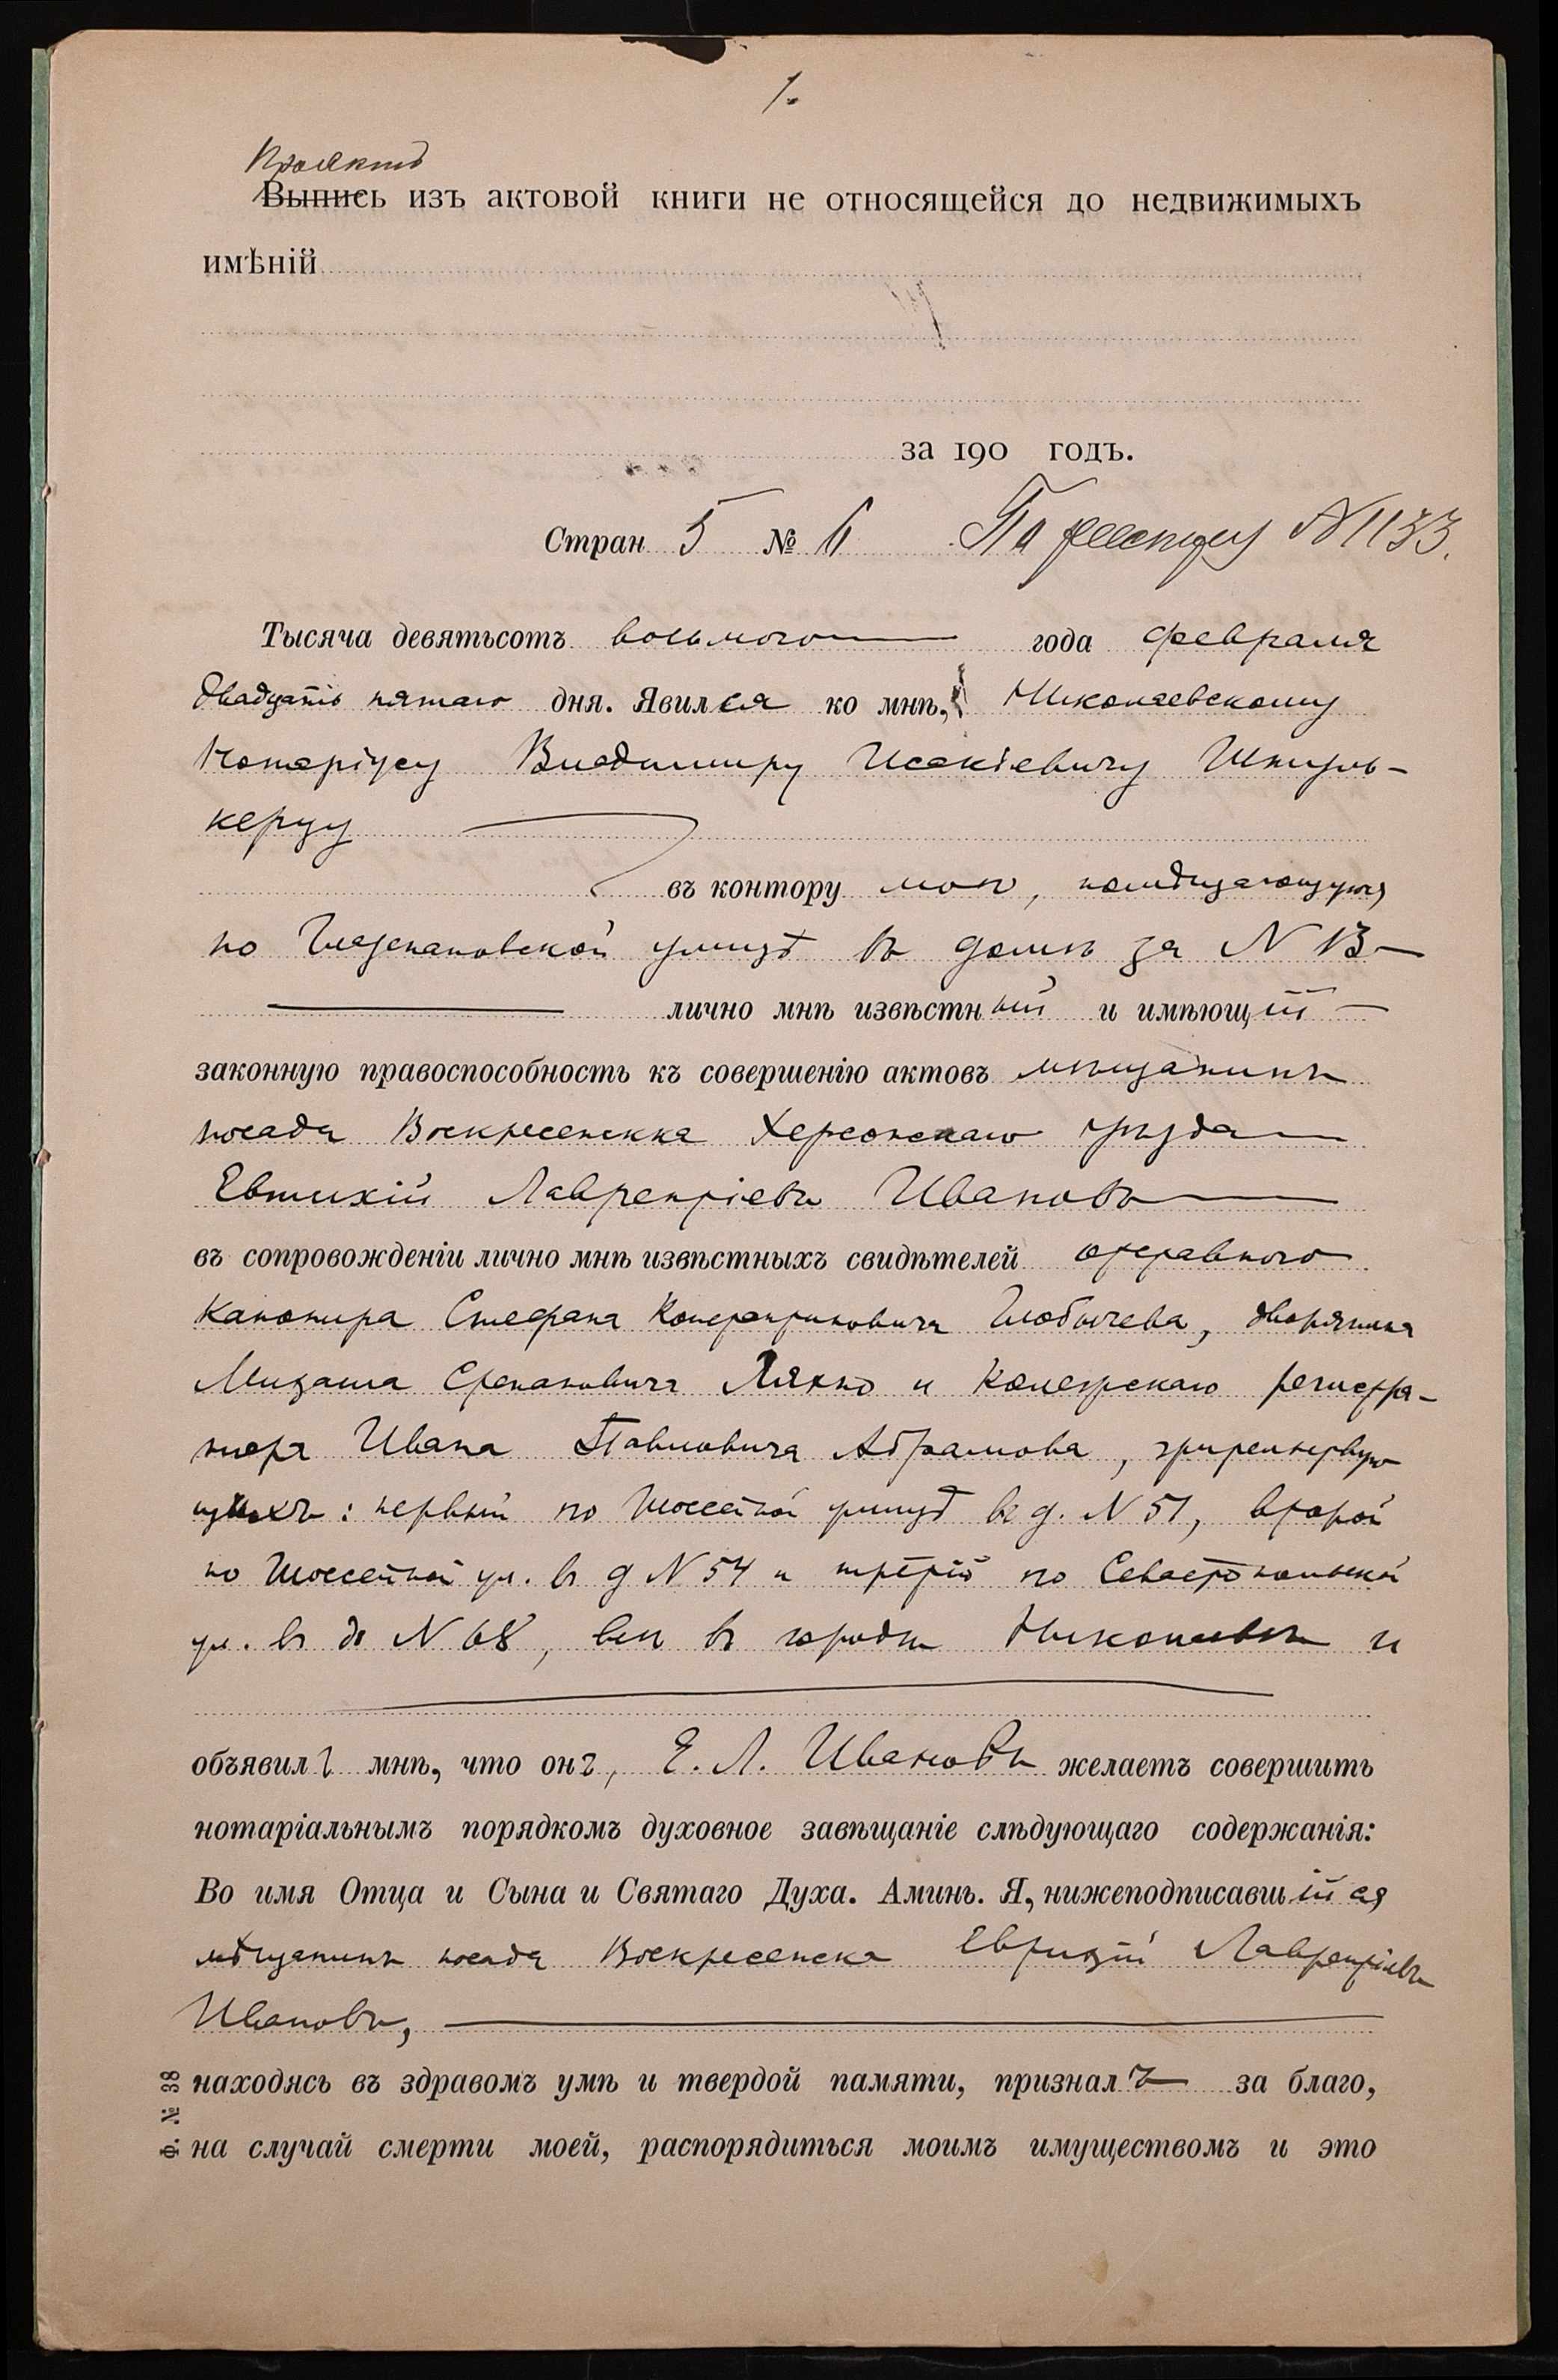 1.
Проектъ
Выпись изъ актовой книги не относящейся до недвижимыхъ
имѣній
за 190 годъ.
Стран 5 № 6 По реестру N 1133.
Тысяча девятьсотъ восьмого года февраля
двадцать пятаго дня. Явился ко мнѣ, Николаевскому
Нотаріусу Владимиру Исакіевичу
керцу
въ контору мою, помѣщающуюся
по улицѣ въ домѣ за N 13
лично мнѣ извѣстный и имѣющій
законную правоспособность къ совершенію актовъ мѣщанинъ
посада Воскресенска Херсонскаго уѣзда
Евтихій Лаврентіевъ Ивановъ
въ сопровожденіи лично мнѣ извѣстныхъ свидѣтелей отставного
канонира Стефана Константиновича дворянина
Степановича и Коллежскаго регистра-
тора Ивана Павловича Абрамова, жительствую
щихъ: первый по Шоссейной улицѣ въ д. N 51, второй
по Шоссейной ул. въ д N 54 и третій по Севастопольской
ул. въ д N 68, всѣ въ городѣ Николаевѣ и
объявилъ мнѣ, что онъ, Е. Л. Ивановъ желаетъ совершить
нотаріальнымъ порядкомъ духовное завѣщаніе слѣдующаго содержанія:
Во имя Отца и Сына и Святаго Духа. Аминь. Я, нижеподписавшійся
мѣщанинъ посада Воскресенска Евтихій Лаврентіевъ
Ивановъ,
находясь въ здравомъ умѣ и твердой памяти, призналъ за благо,
на случай смерти моей, распорядиться моимъ имуществомъ и это
Ф. № 38